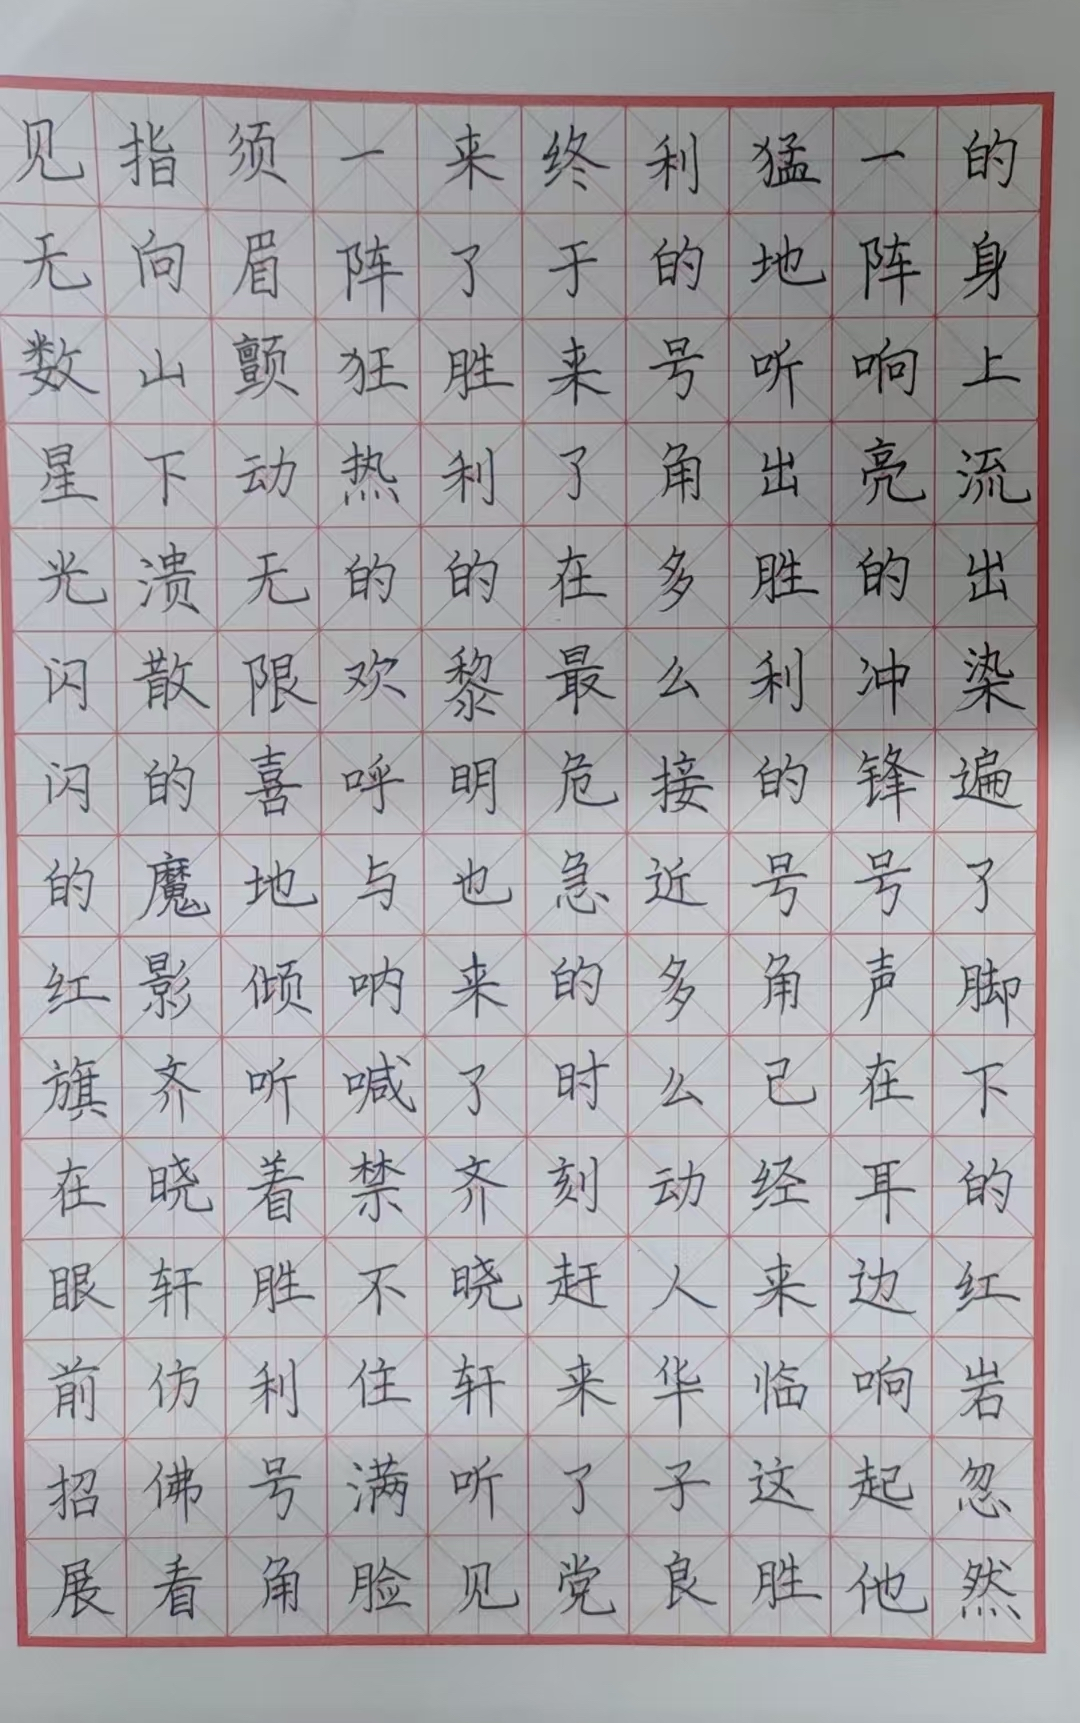 的身上流出染遍了脚下的红岩忽然
一阵响亮的冲锋号声在耳边响起他
猛地听出胜利的号角己经来临这胜
利的号角多么接近多么动人华子良
终于来了在最危急的时刻赶来了党
来了胜利的黎明也来了齐晓轩听见
一阵狂热的欢呼与呐喊禁不住满脸
须眉颤动无限喜地倾听着胜利号角
指向山下溃散的魔影齐晓轩仿佛看
见无数星光闪闪的红旗在眼前招展